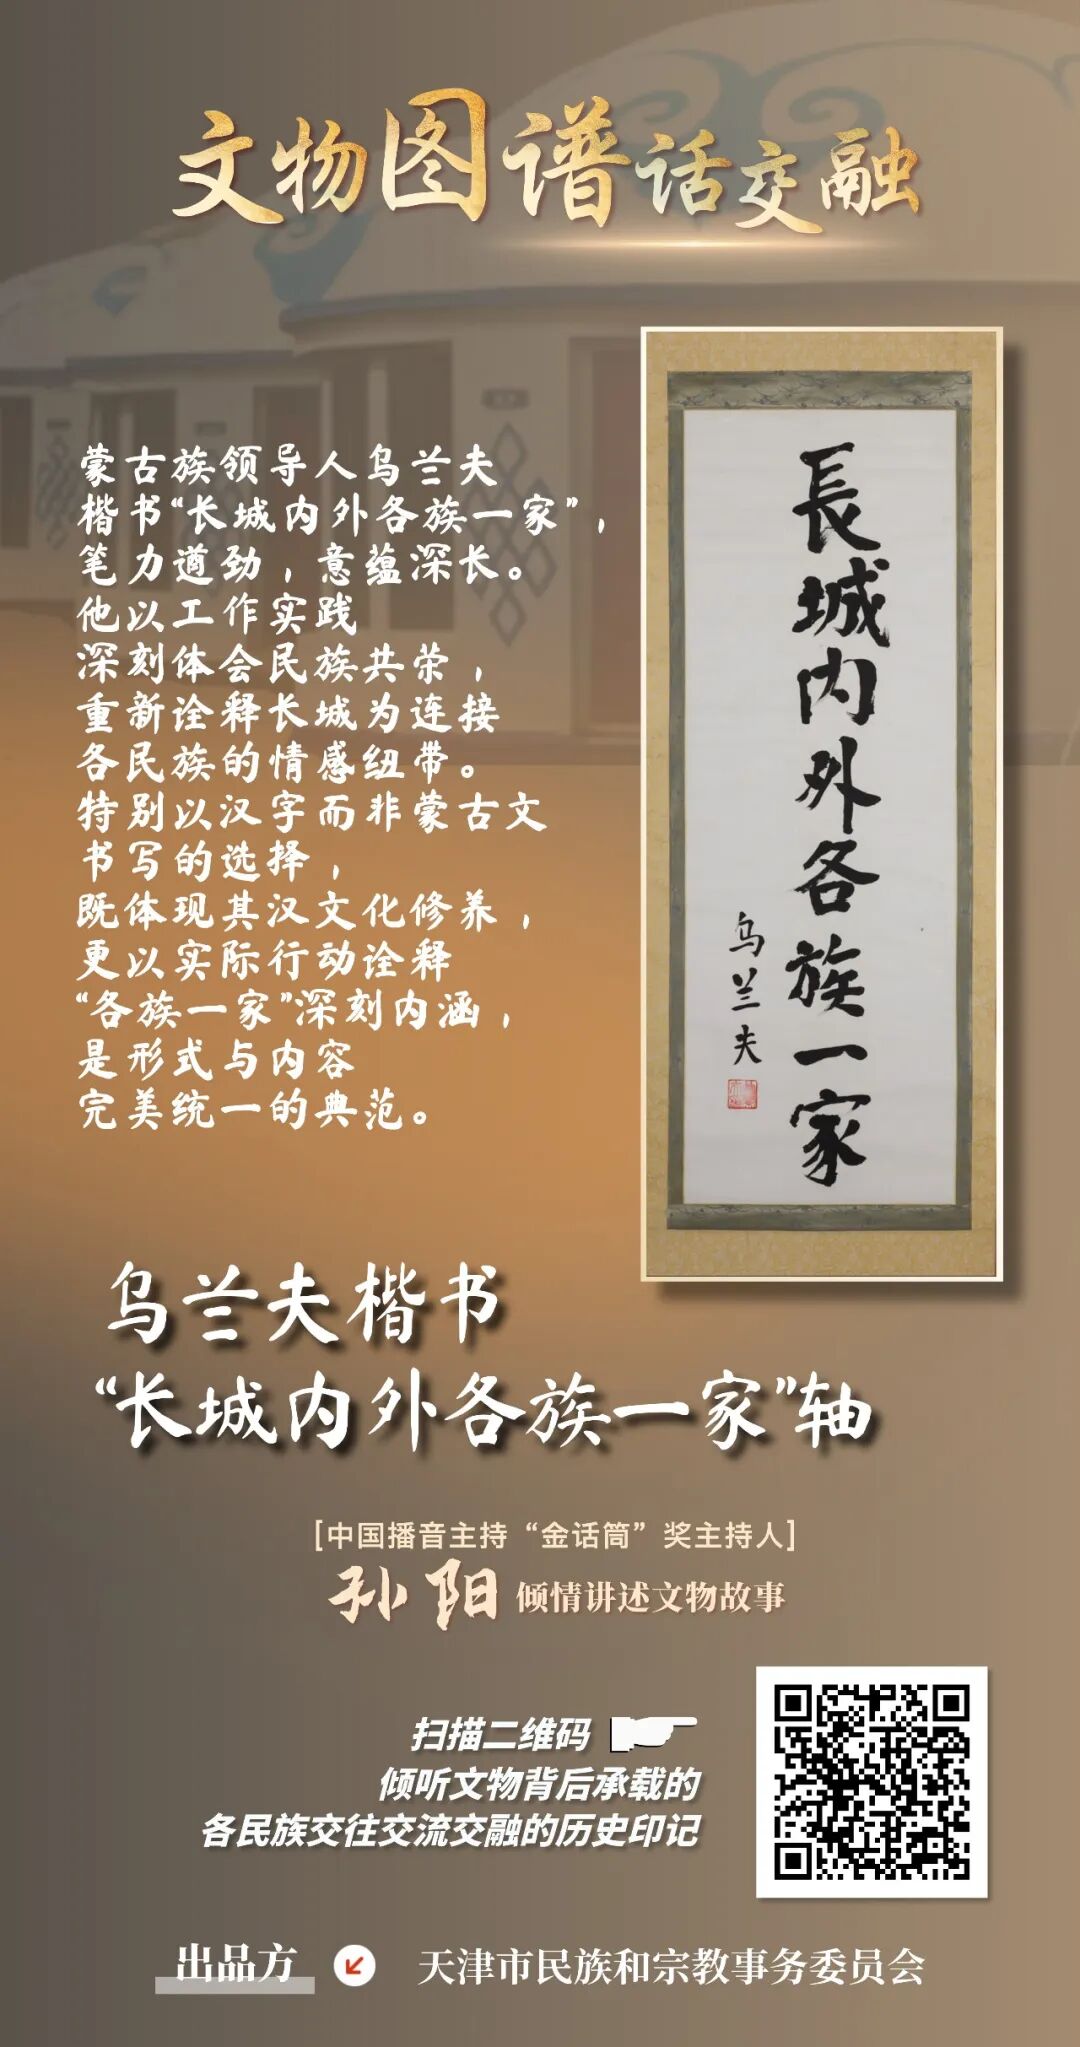 文物图谱话交融
蒙古族领导人乌兰夫
楷书“长城内外各族一家”，
笔力遒劲，意蕴深长。
他以工作实践
深刻体会民族共荣，
重新诠释长城为连接
各民族的情感纽带。
特别以汉字而非蒙古文
书写的选择，
既体现其汉文化修养，
更以实际行动诠释
“各族一家”深刻内涵，
是形式与内容
完美统一的典范。
長城内外各族一家
乌兰夫
乌兰夫楷书
“长城内外各族一家”轴
[中国播音主持“金话筒”奖主持人]
孙阳 倾情讲述文物故事
扫描二维码
倾听文物背后承载的
各民族交往交流交融的历史印记
出品方 天津市民族和宗教事务委员会